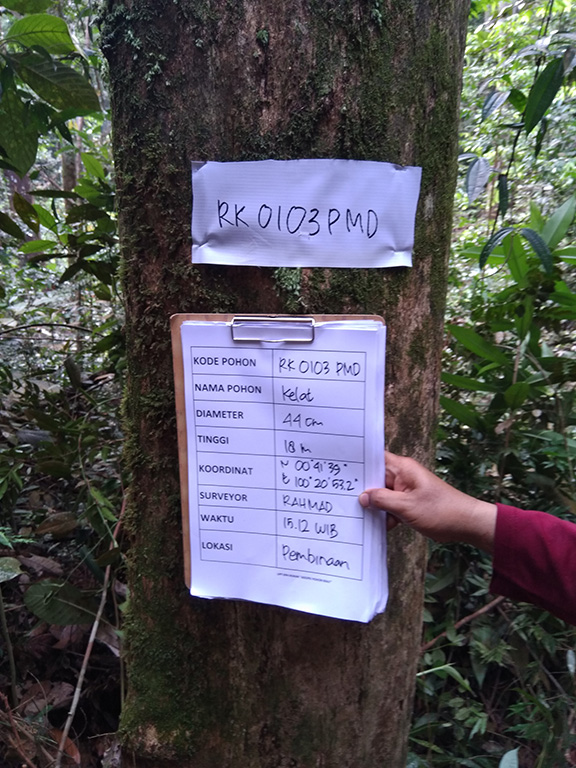 RK 0103 PMD
KODE POHON RK 0103 PMD
NAMA POHON Kelat
DIAMETER 44 cm
TINGGI 18 m
KOORDINAT N 00°41'39"
E 100°20'53.2"
SURVEYOR RAHMAD
WAKTU 15.12 WIB
LOKASI Pembinaan